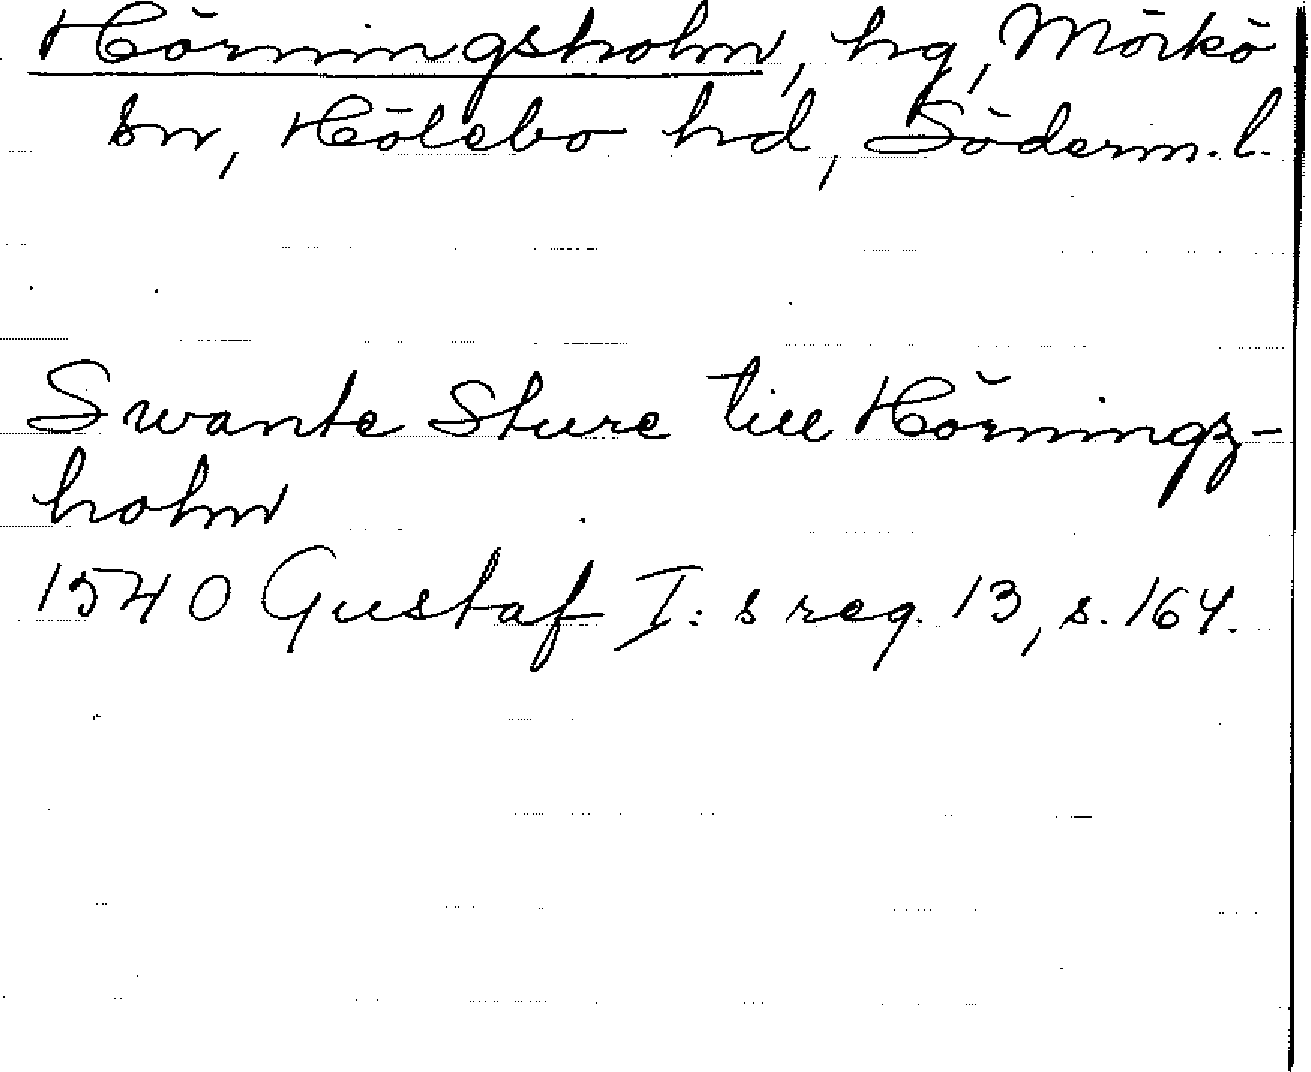 Hörningsholm, hg, Mörkö
sn, Hölebo hd, Söderm. l.
Swante Sture till Hörningz-
holm
1540 Gustaf I: s reg. 13, s. 164.